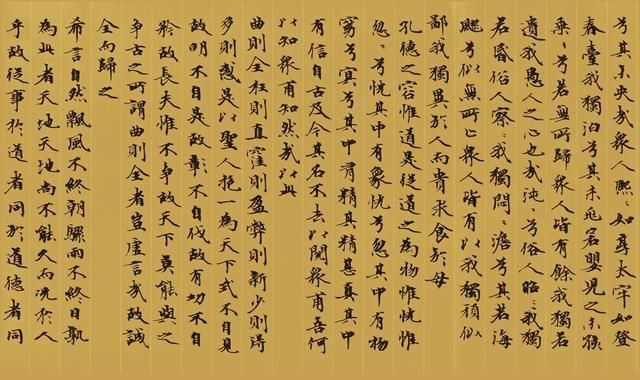 兮其未央哉衆人熙〻如享太牢如登
春臺我獨泊兮其未兆若嬰兒之未孩
乘〻兮若無所歸衆人皆有餘我獨若
遺我愚人之心也哉沌〻兮俗人昭〻我獨
若昏俗人察〻我獨悶〻澹兮其若海
飂兮似無所止衆人皆有以我獨頑似
鄙我獨異於人而貴求食於母
孔德之容惟道是從道之為物惟恍惟
忽〻兮恍其中有象恍兮忽其中有物
窈兮冥兮其中有精其精甚真其中
有信自古及今其名不去以閱衆甫吾何
以知衆甫知然哉以此
曲則全枉則直窪則盈弊則新少則得
多則惑是以聖人抱一為天下式不自見
故明不自是故彰不自伐故有功不自
矜故長夫惟不爭故天下莫能與之
爭古之所謂曲則全者豈虛言哉故誠
全而歸之
希言自然飄風不終朝驟雨不終日孰
為此者天地天地尚不能久而況於人
乎故從事於道者同於道德者同